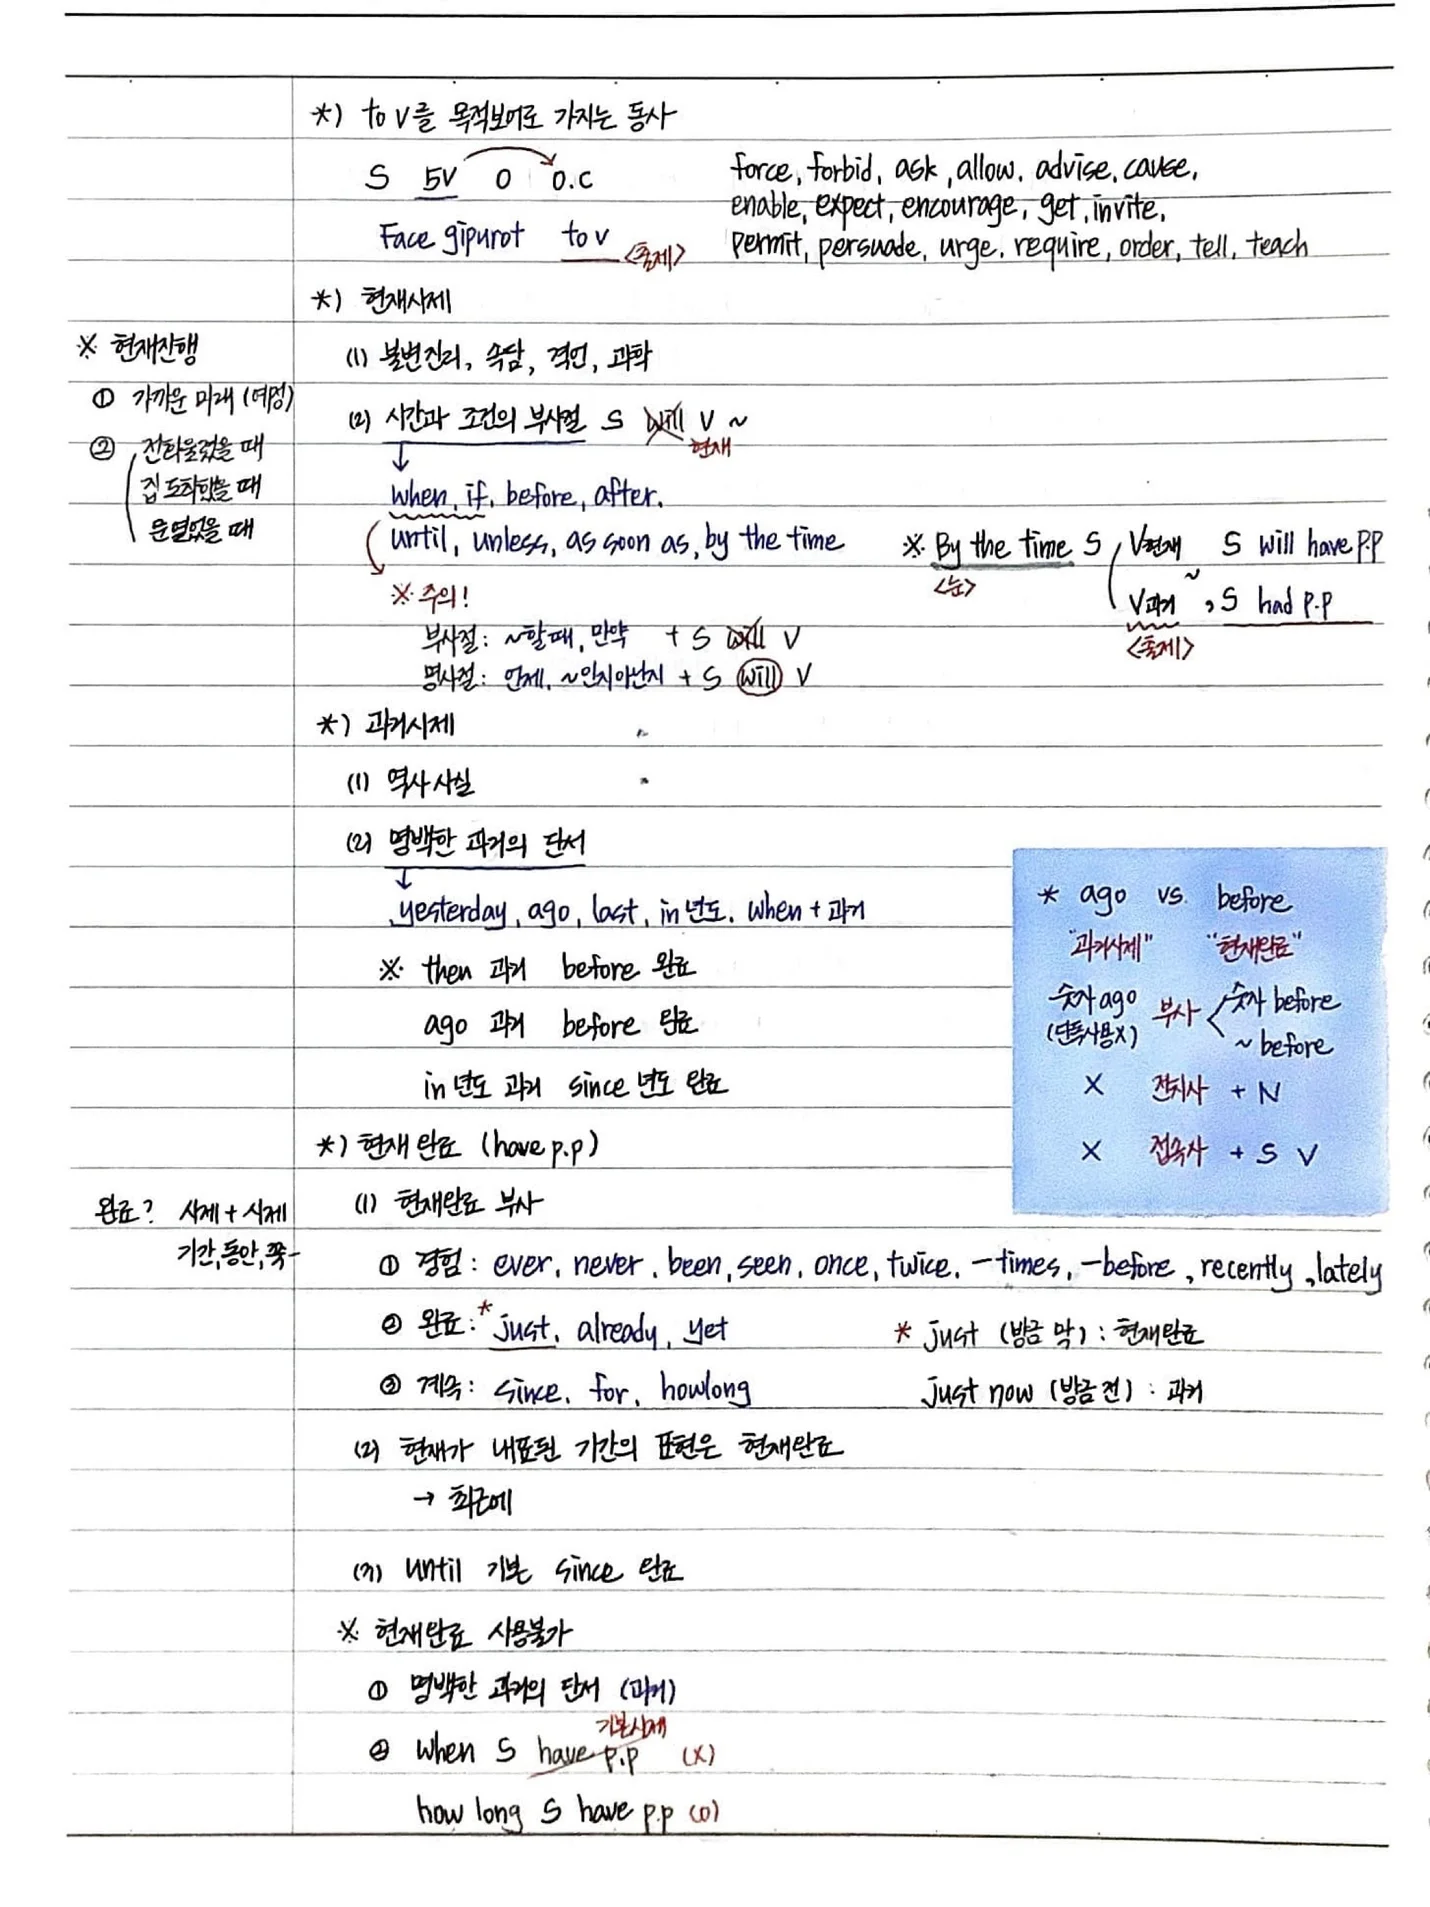 *) to v를 목적보어로 가지는 동사
S 5V O O.C
force, forbid, ask, allow, advise, cause,
enable, expect, encourage, get, invite,
Face gipurot to v <출제>
permit, persuade, urge, require, order, tell, teach
*) 현재시제
※ 현재진행
(1) 불변진리, 속담, 격언, 과학
① 가까운 미래 (예정)
(2) 시간과 조건의 부사절 S will V ~
현재
② 전화울렸을 때
집 도착했을 때
문열었을 때
when, if, before, after,
until, unless, as soon as, by the time
※ By the time S V현재 S will have p.p
<눈>
V과거 ~, S had p.p
<출제>
※ 주의!
부사절: ~할때, 만약 + S will V
명사절: 언제, ~인지아닌지 + S will V
*) 과거시제
(1) 역사사실
(2) 명백한 과거의 단서
yesterday, ago, last, in 년도, when + 과거
※ then 과거 before 완료
ago 과거 before 완료
in 년도 과거 since 년도 완료
* ago vs. before
"과거시제" "현재완료"
숫자 ago 부사 숫자 before
(단독사용X) ~ before
X 전치사 + N
X 접속사 + S V
*) 현재완료 (have p.p)
완료? 시제 + 시제
기간, 동안, 쭉~
(1) 현재완료 부사
① 경험: ever, never, been, seen, once, twice, -times, -before, recently, lately
② 완료: * just, already, yet
* just (방금 막) : 현재완료
③ 계속: since, for, howlong
just now (방금 전) : 과거
(2) 현재가 내포된 기간의 표현은 현재완료
→ 최근에
(3) until 기본 since 완료
※ 현재완료 사용불가
① 명백한 과거의 단서 (과거)
기본시제
② when S have p.p (X)
how long S have p.p (O)